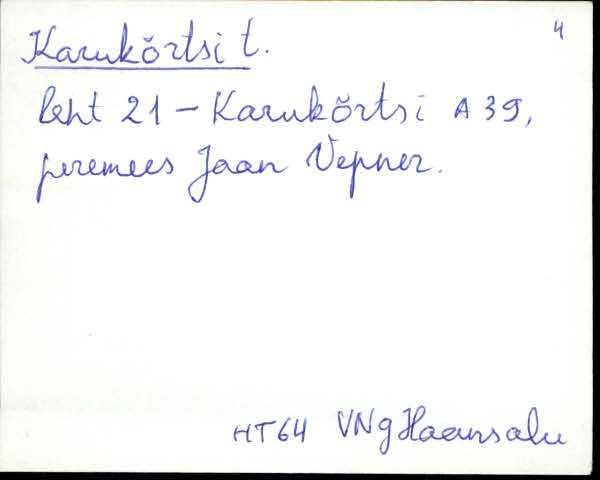 4
Karukõrtsi t.
leht 21 - Karukõrtsi A 39,
peremees Jaan Vepner.
HT64 VNg Haansalu